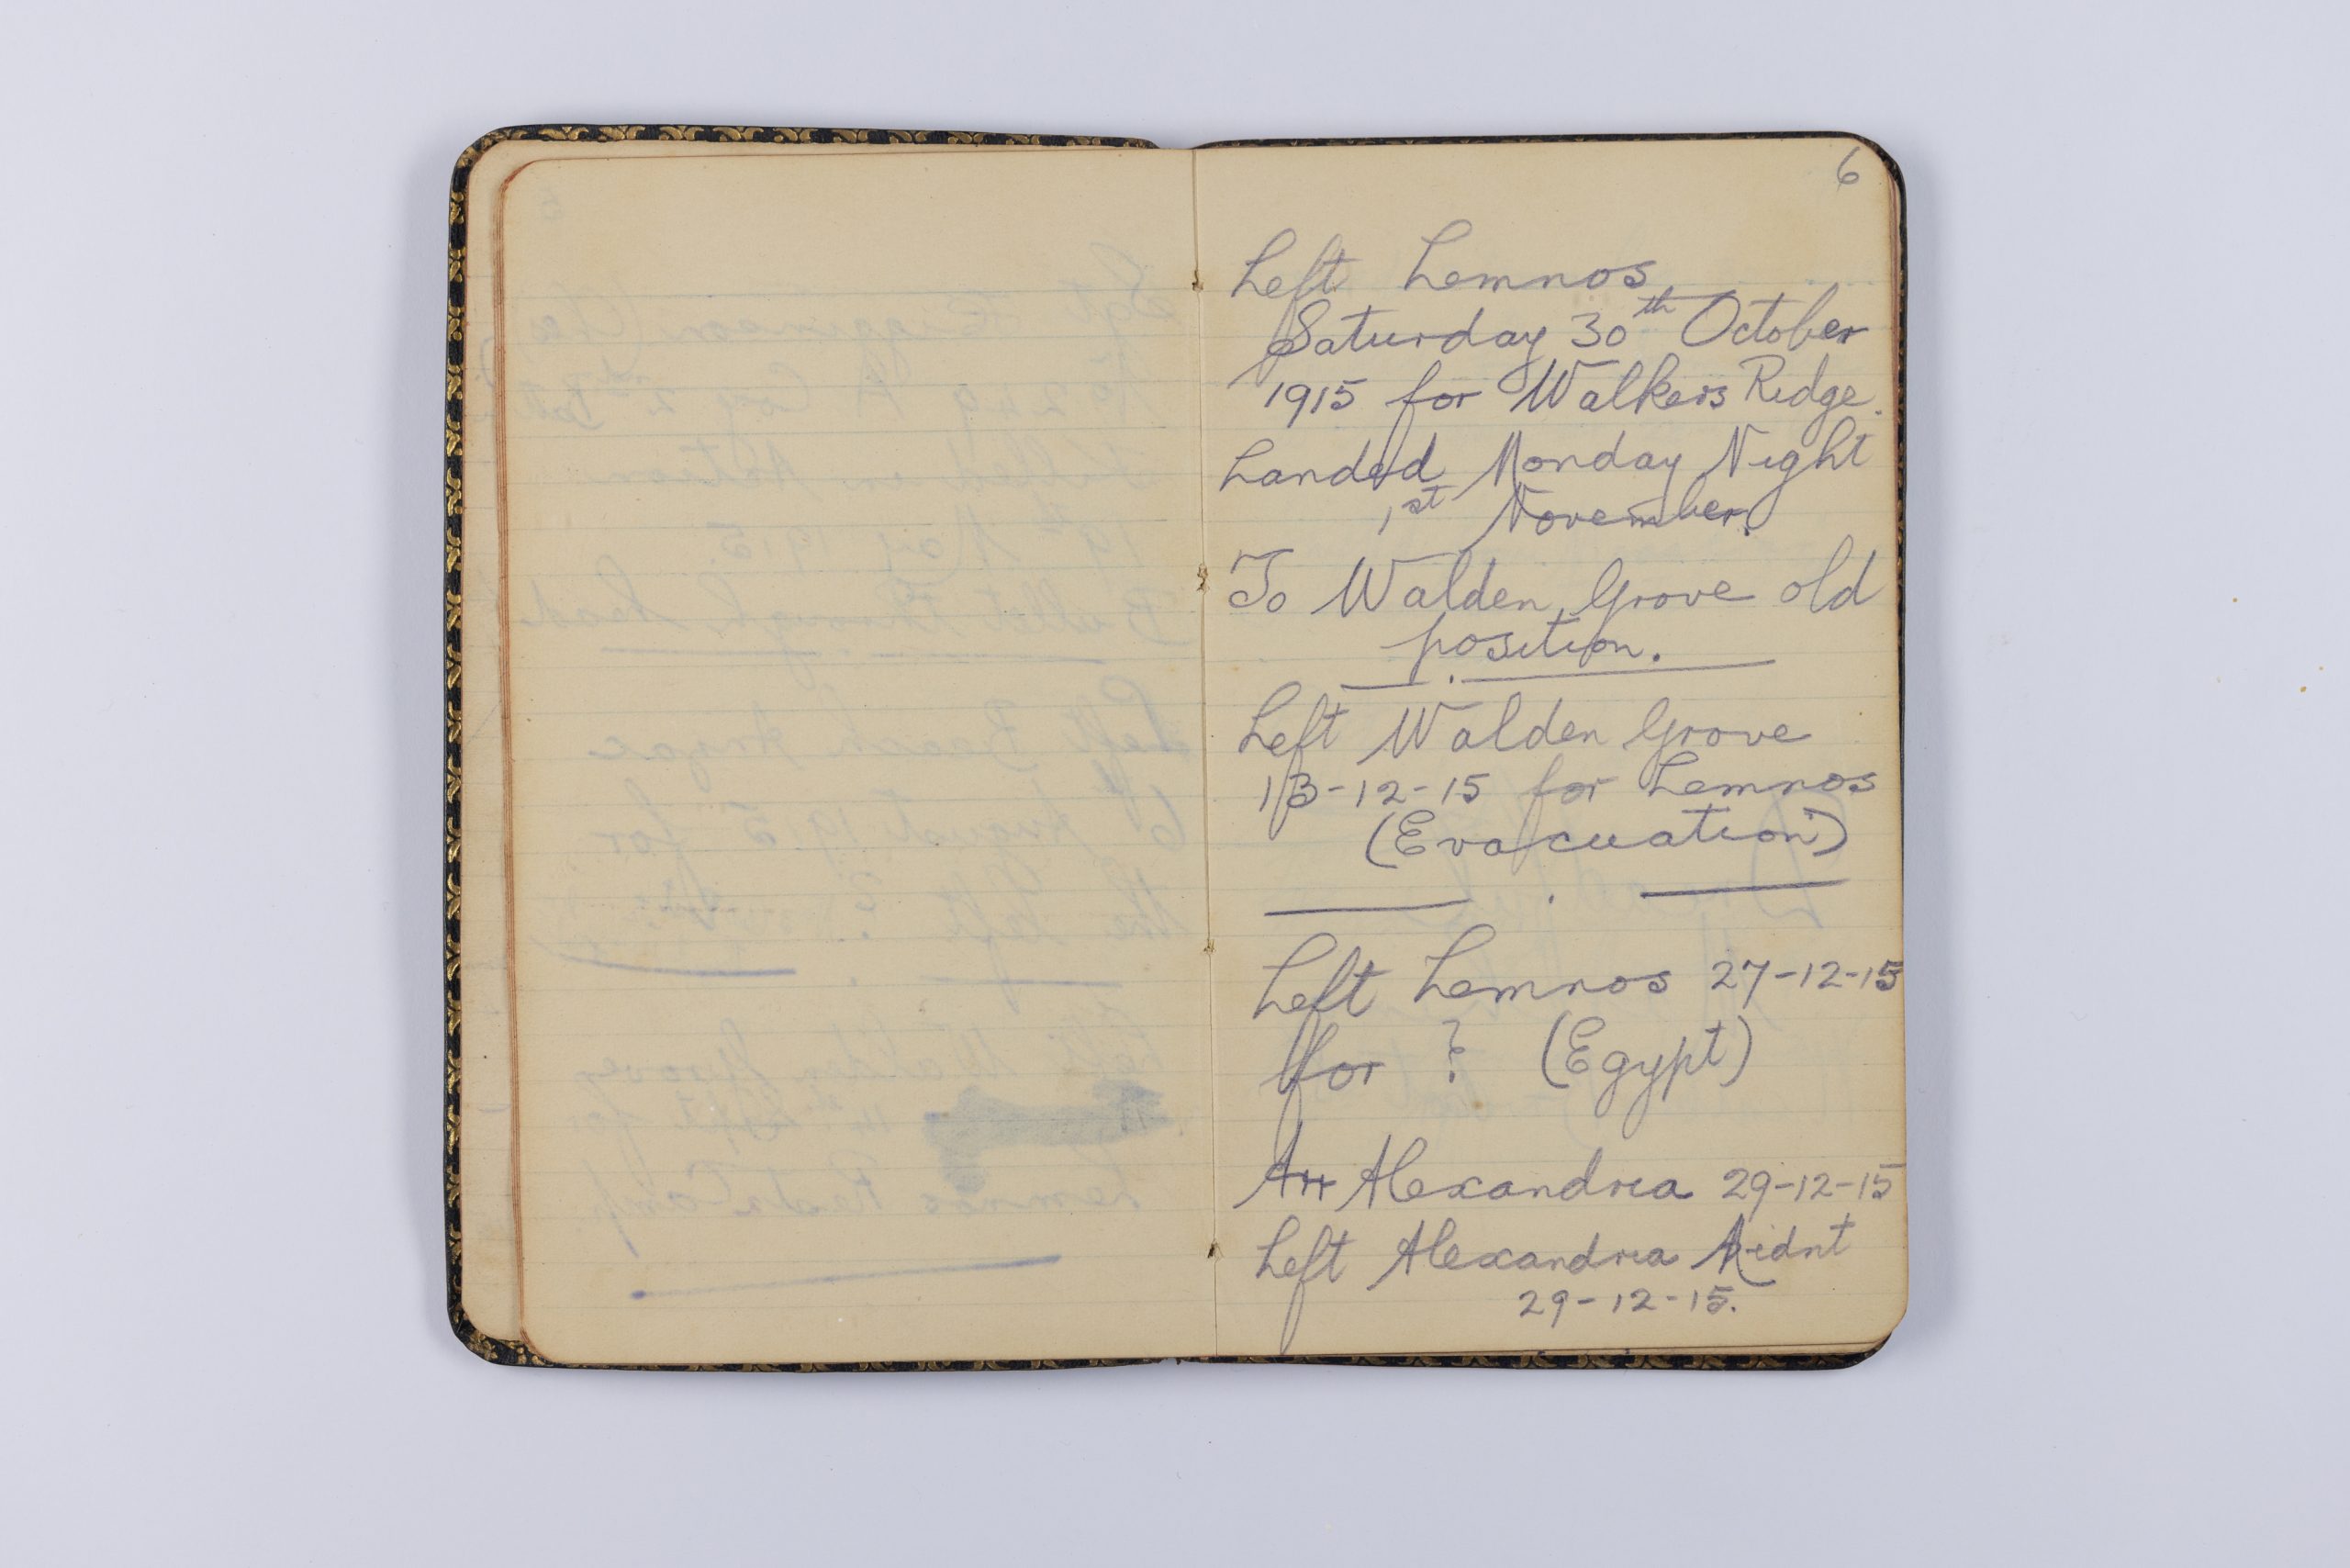 6
Left Lemnos
Saturday 30th October
1915 for Walkers Ridge.
Landed Monday Night
1st November.
To Walden Grove old
position.
Left Walden Grove
13-12-15 for Lemnos
(Evacuation)
Left Lemnos 27-12-15
for ? (Egypt)
Arr Alexandria 29-12-15
Left Alexandria Midnt
29-12-15.